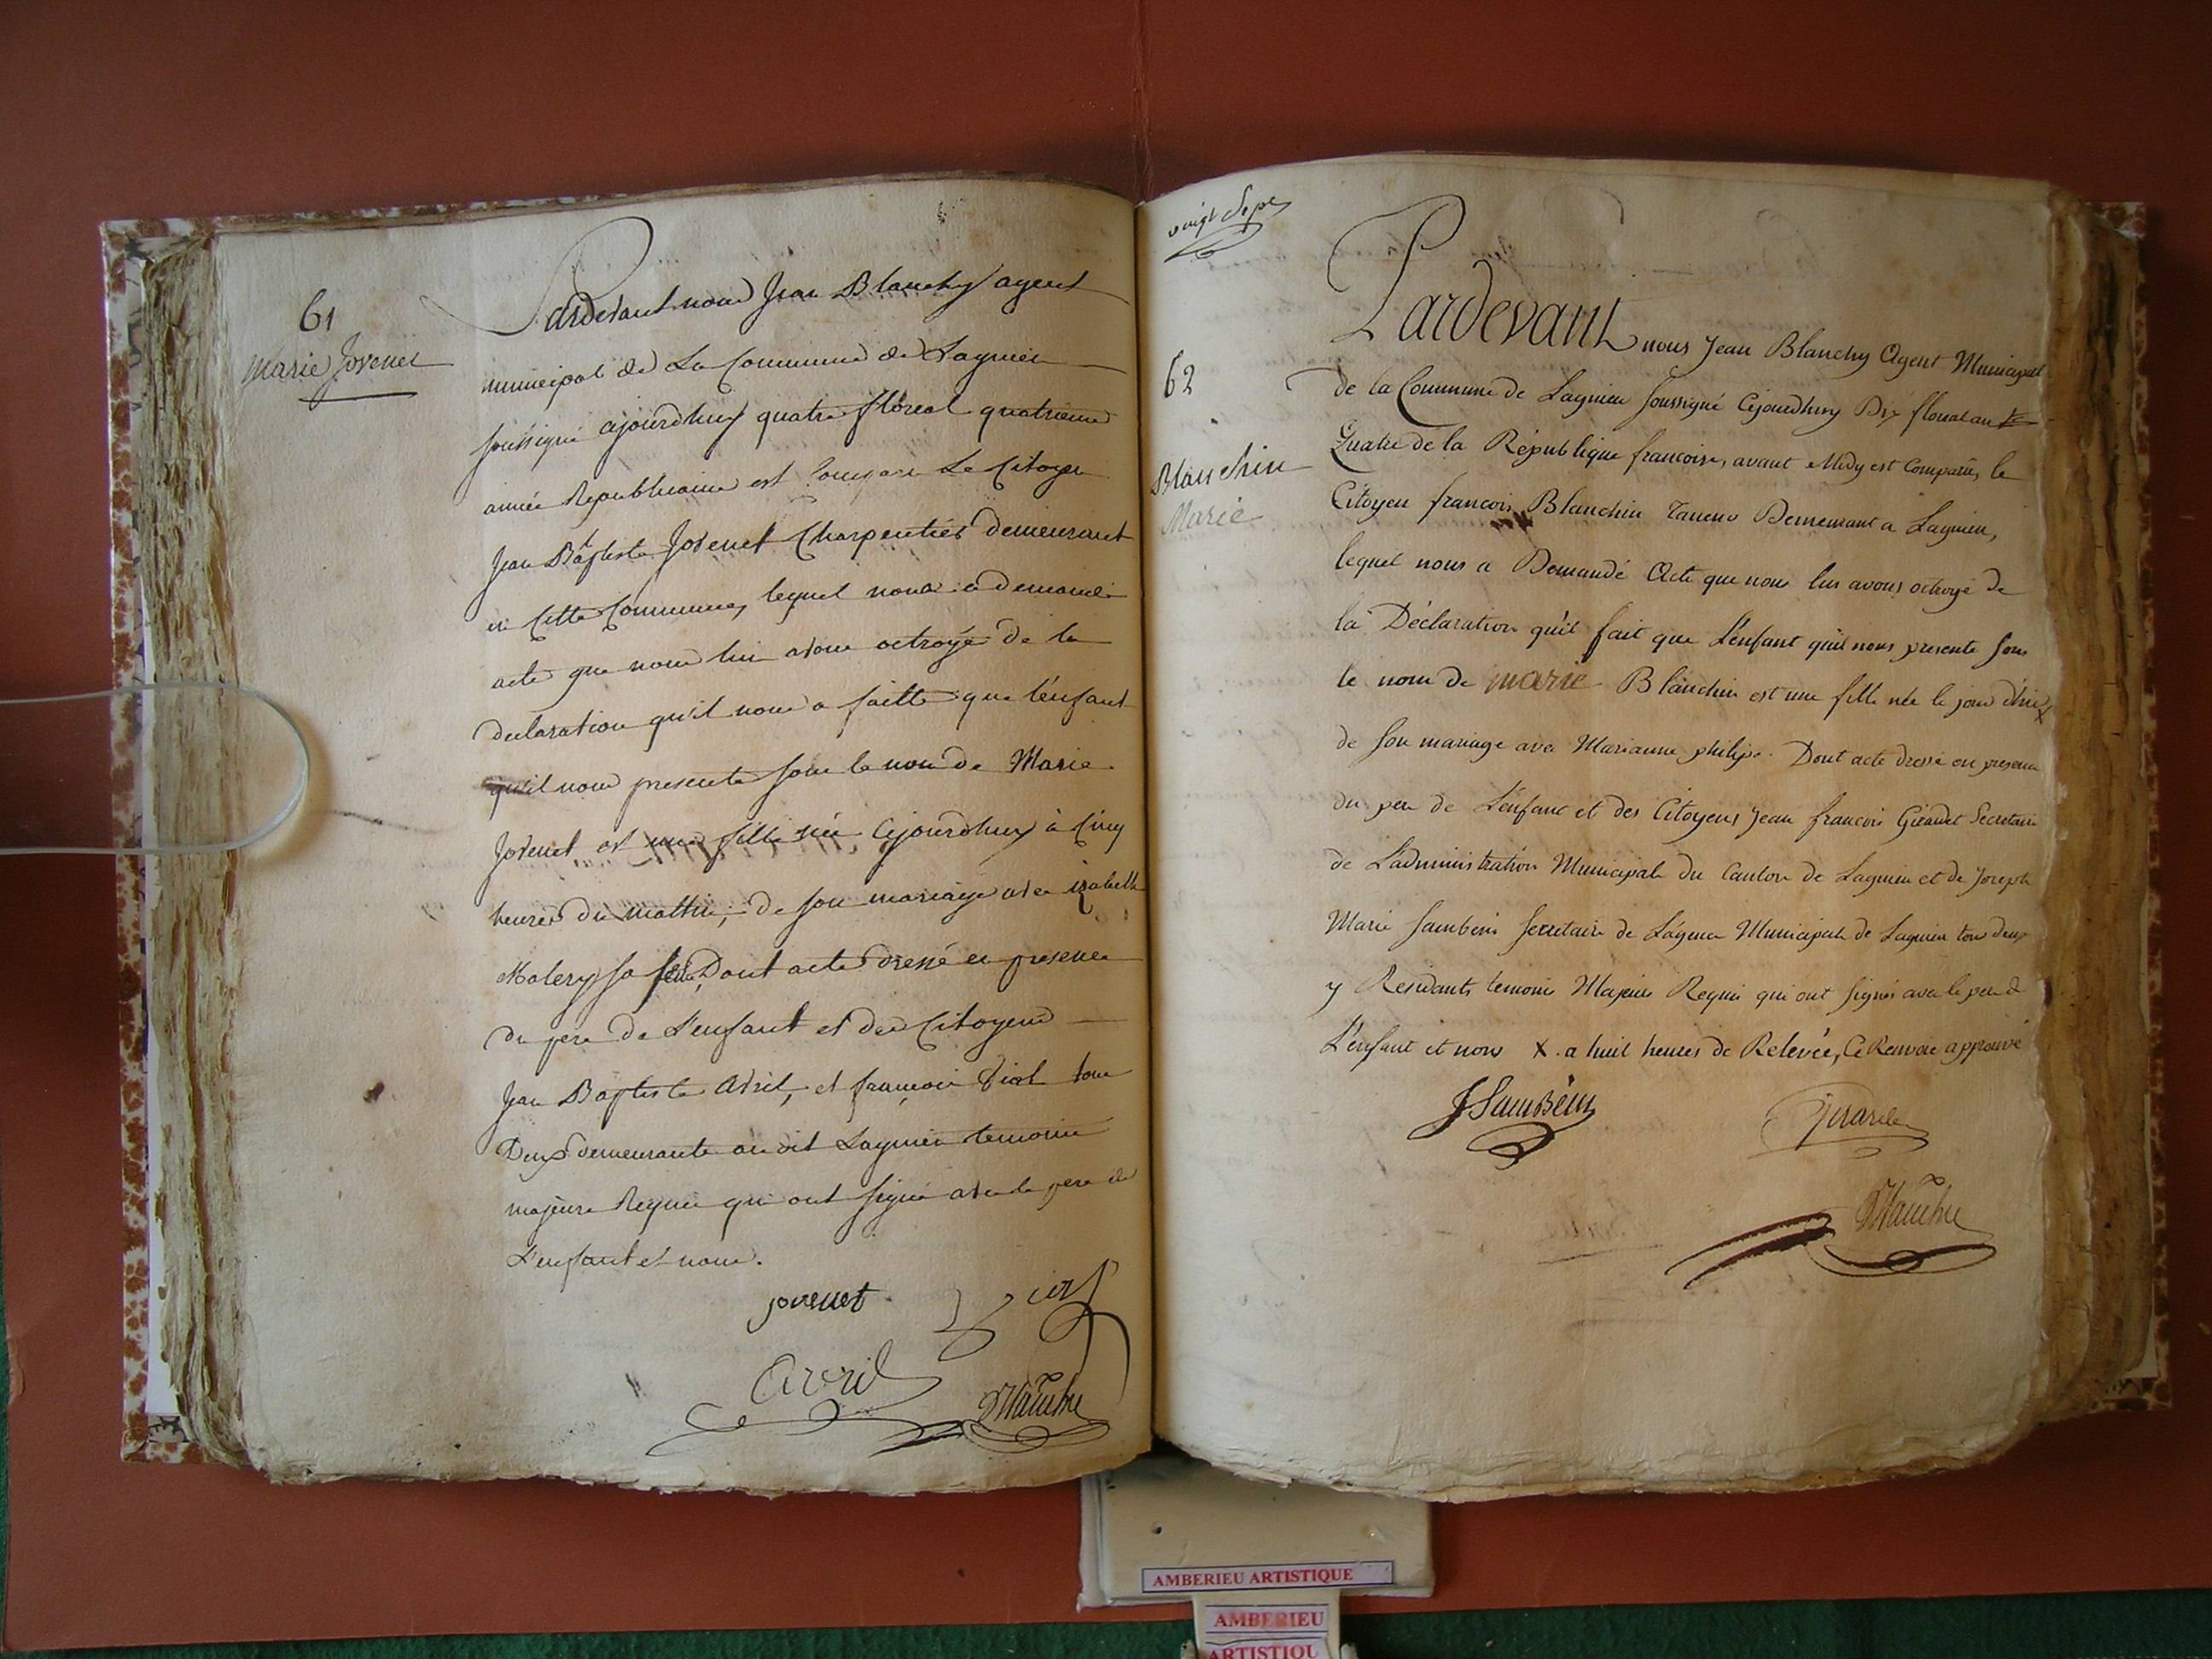 61
Marie Jovenet
Pardevant nous Jean Blanchy agent
municipal de La Commune de Lagnieu
soussigné ajourdhuy quatre floreal quatrieme
année Republicaine est Comparu Le Citoyen
Jean Baptiste Jovenet Charpentier demeurant
en Cette Commune, lequel nous a demandé
acte que nous lui avons octroyé de la
declaration qu'il nous a faitte que l'enfant
qu'il nous presente sous le nom de Marie
Jovenet est une fille née Cejourdhuy à Cinq
heures du mattin, de son mariage avec izabelle
sa fem, Dont acte dressé en presence
du pere de L'enfant et des Citoyens
Jean Baptiste Avril, et françois Vial tous
Deux demeurants au dit Lagnieu temoins
majeurs Requis qui ont signé avec le pere de
L'enfant et nous.
jovenet
Vial
Avril
Blanchy
vingt Sept
62
Blanchin
Marie
Pardevant nous Jean Blanchy Agent Municipal
de la Commune de Lagnieu soussigné Cejourdhuy Dix floreal an
Quatre de la République francoise, avant Midy est Comparu, le
Citoyen francois Blanchin Taneur Demeurant a Lagnieu,
lequel nous a Demandé Acte que nous lui avons octroyé de
la Déclaration qu'il fait que L'enfant qu'il nous presente sous
le nom de marie Blanchin est une fille née le jour d'hier X
de son mariage avec Marianne philipe. Dont acte dressé en presence
du pere de L'enfant et des Citoyens Jean francois Girardet Secretaire
de L'administration Municipale du Canton de Lagnieu et de Joseph
Marie Sambein Secretaire de L'agence Municipale de Lagnieu tous deux
y Residants temoins Majeurs Requis qui ont signés avec le pere de
L'enfant et nous X. a huit heures de Relevée, Ce Renvoie approuvé
JSambein
Girardet
Blanchy
AMBERIEU ARTISTIQUE
AMBERIEU
ARTISTIQU